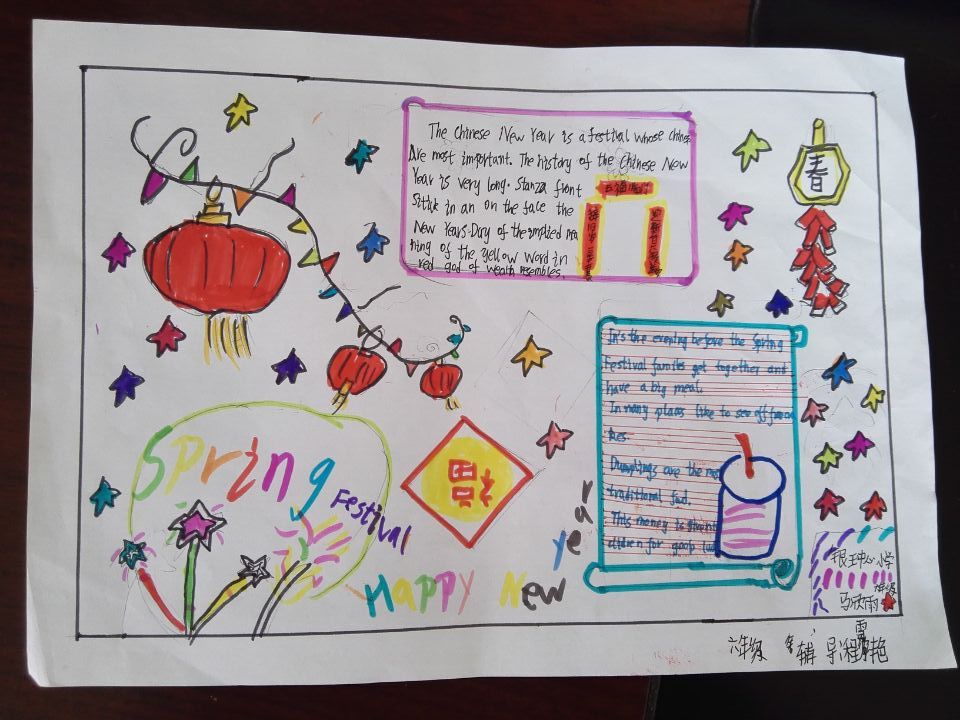 The Chinese New Year is a festival whose Chinese
Are most important. The history of the Chinese New
Year is very long. Stanza front
Stick in an on the face the
New Years-Day of the implied mea
ning of the yellow word in
red god of wealth resembles.
春
It's the evening before the Spring
Festival familes get together and
have a big meal.
In many places like to see off fire
kes.
Dumplings are the
traditional food.
This money is
children for good
Spring
Festival
福
Happy New
year
小学
六年级
马欣雨
六年级 辅导